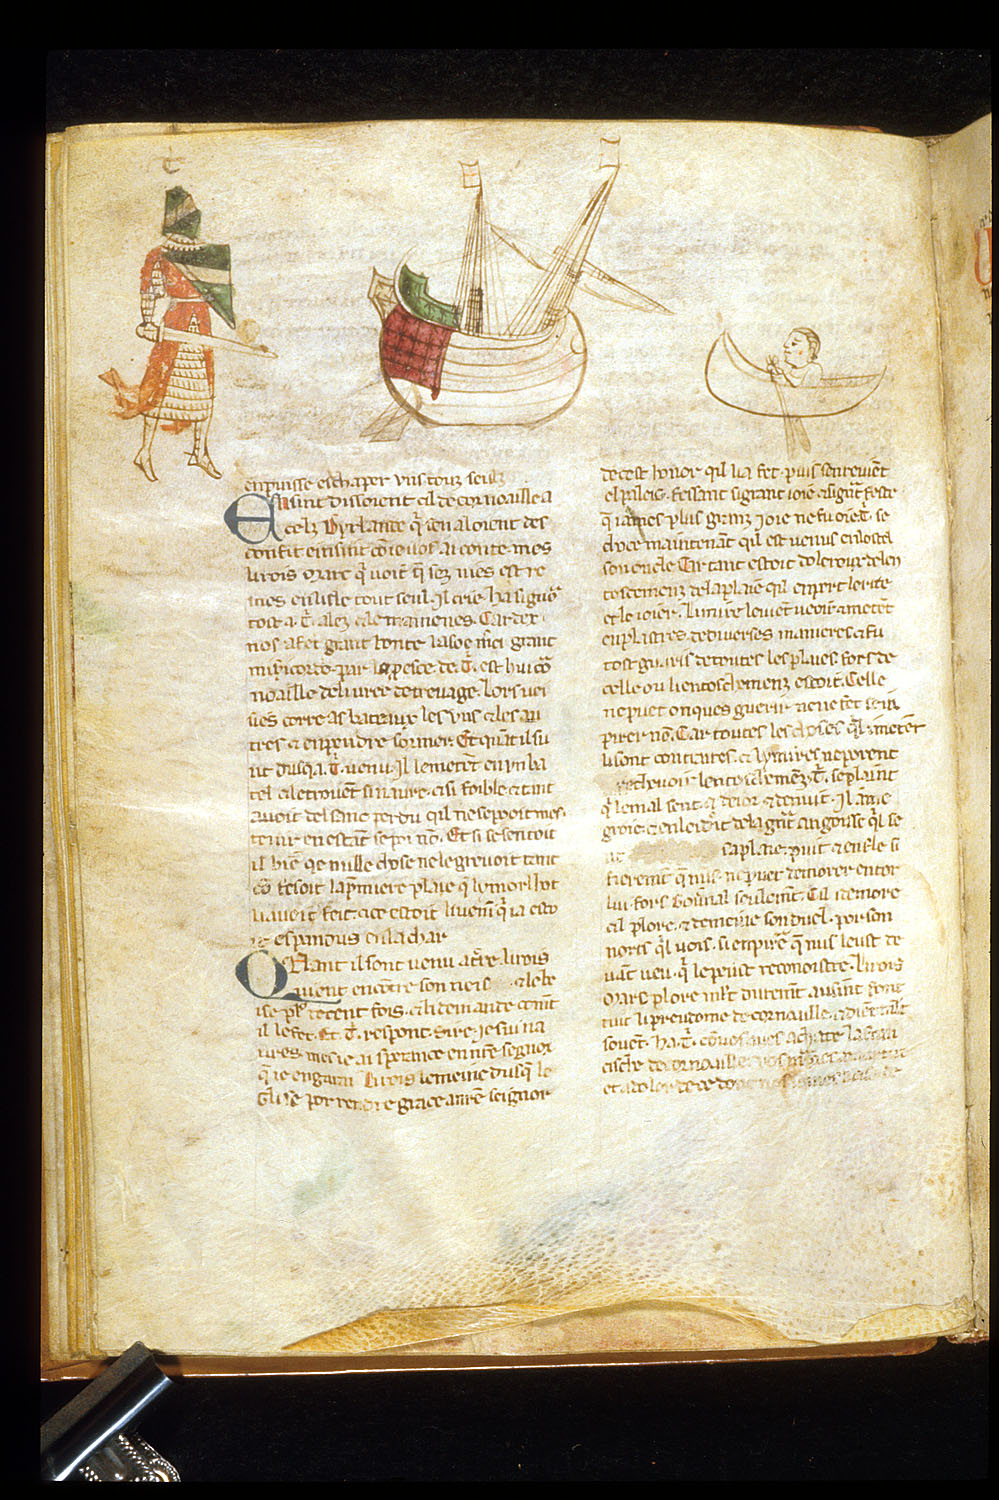 t
en puisse eschaper vns touz seulz
Ensint dissoient cil de cornoaille a
celz dyrlande q̃ sen aloient des
confit einsint cõ ie uos ai conte. mes
li rois marc q̃ voit q̃ sez nies est re
mes en lisle tout seul. Il crie ha signõr
tost a .t̃. alez & le mamenes. Car dex
nos a fet grant honte la soe m̃ci grant
mis̃icorde. par la p̱esce de .t̃. est hui cõ
noaille deliuree de treuage. lors uei
sies corre as bateaux les vns & les au
tres & enp̃ndre sor mer. Et quãt il fu
rent dusqa .t̃. venu. Il le metẽt en vn ba
tel & le trouẽt si naure. & si foible & tant
auoit del sanc perdu qil ne se pooit mes
tenir en estãt se poi nõ. Et si se sentoit
il biẽ qe nulle chose ne le greuoit tant
cõ fesoit la p̃miere plaie q̃ lymorhot
li auoit feit. & ce estoit li uenĩ q̃ ia esto
it espandus en la char
Quant il sont venu a t̃re. li rois
qui uent encõtre son nies & le be
ise pl9 de cent fois. & li demande cõmt
il le fet. Et .t̃. respont. sire. Je sui na
ures. mes ie ai sperance en nr̃e segnor
q̃ ie en garrai li rois lemeine dusq̃ le
glise por rendre grace a nr̃e seignor
de cest honor qil li a fet. puis senreuiẽt
el paleis. fessant si grant ioie & si grãt feste
q̃ iames plus granz ioie ne fu oie .t̃. se
chuce maintenãt qil est venus en lostel
son oncle Car tant estoit dolerous de len
toschemenz de la plaie qil en pert le rire
et le ioier. li mire leuẽt ueoir & metẽt
enplastres de diuerses manieres & fu
tost guaris de toutes les plaies. fors de
celle ou li entoschemenz estoit. Celle
ne puet onques guerir ne ne fet sen
pirer nõ. Car toutes les choses qil i metẽt
li sont contraires. & ly mires ne porent
rechnoir lentoschemẽz .t̃. se plaint
q̃ le mal sent. & de ior & de nuit. Il ama
groie. & enledi't de la grãt angoisse qil se
nt sa plaie. puit & enfle si
fierem̃t q̃ nus ne puet demorer entor
lui fors Gou̓nal seulem̃t. Cil i demore
cil plore. & demeine son duel. por son
norri qil uois. si enpir̃e q̃ nus leust de
uãt ueu. q̃ le peust reconoistre. li rois
mars plore ml't durem̃t. ausint font
tuit li preudome de cornoaille. & diẽt
souẽt. ha .t̃. cõ uos aues achate la fran
cisse de cornoaille.
et a dolor de ce dont